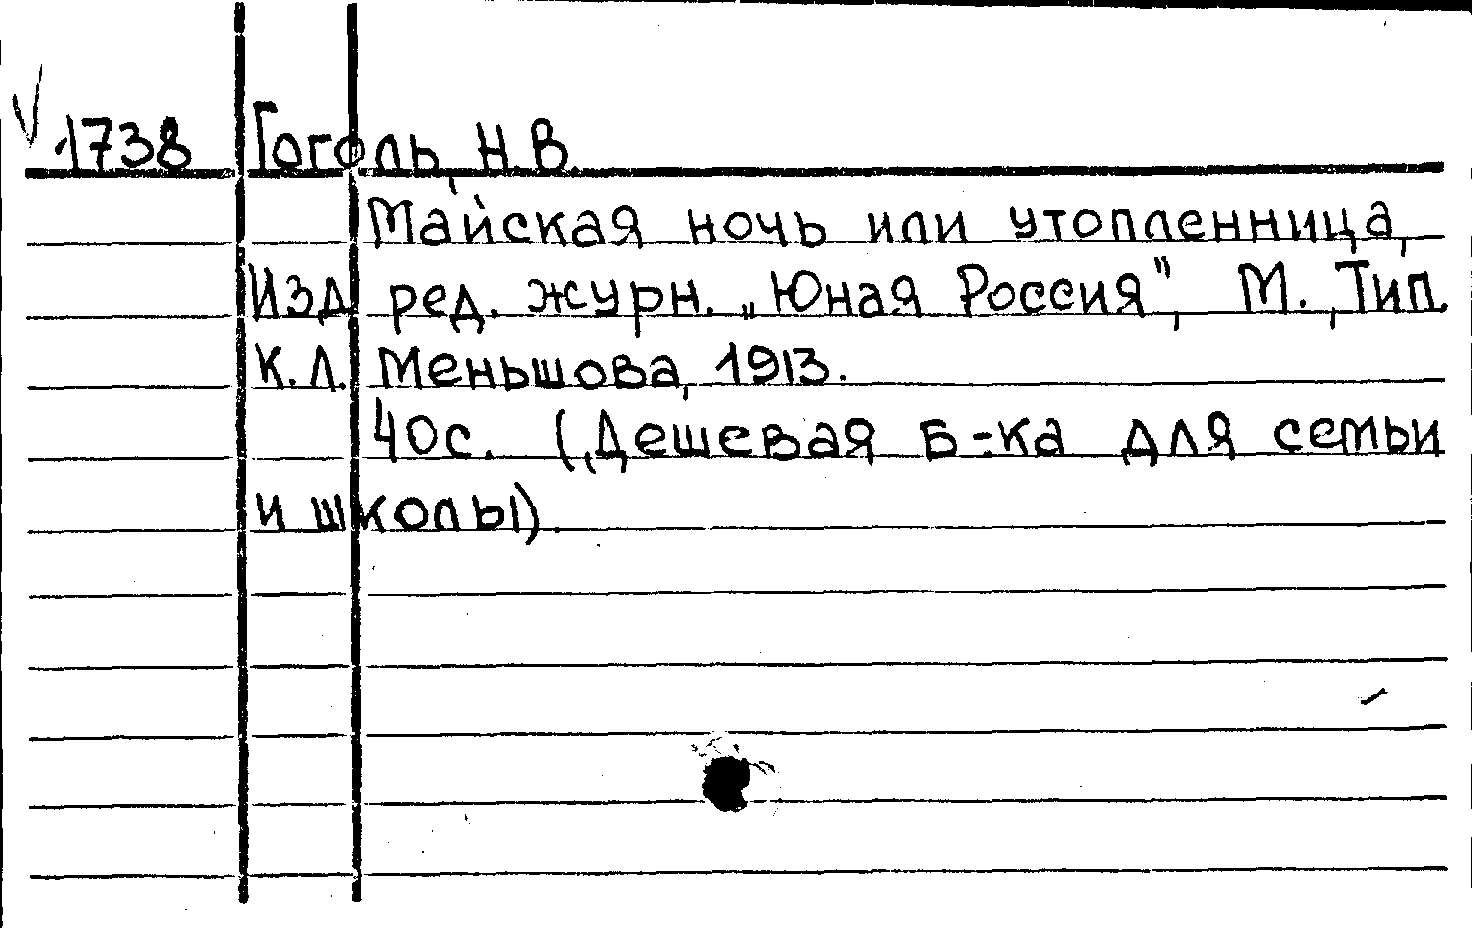 √ 1738 Гоголь, Н.В.
Майская ночь или утопленница,
Изд. ред. журн. „Юная Россия", М., Тип.
К.Л. Меньшова, 1913.
40с. („Дешевая Б-ка для семьи
и школы).